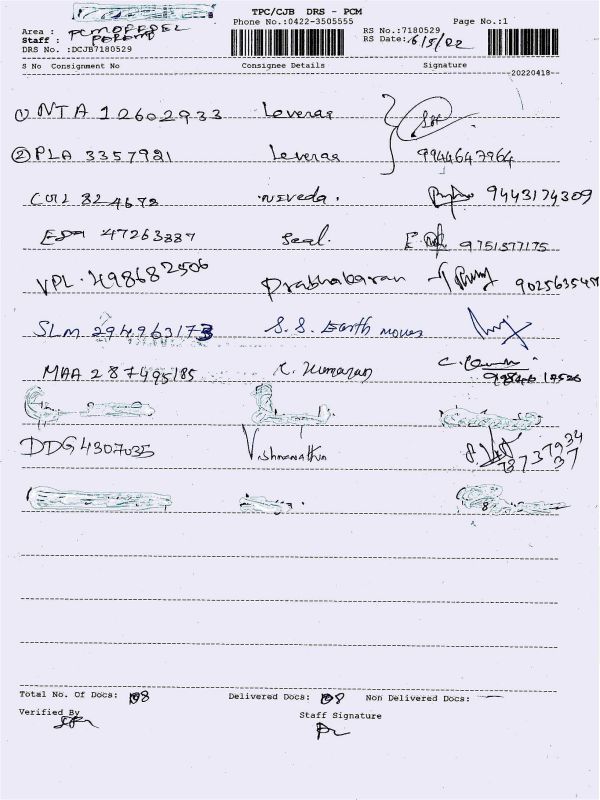 TPC/CJB DRS - PCM
Phone No.:0422-3505555 Page No.:1
Area : PCMOFFSEL
Staff :
DRS No. :DCJB7180529
RS No.:7180529
RS Date: 6/5/22
S No Consignment No Consignee Details Signature
20220418
① NTA 12602933 Leveraa
② PLA 3357921 Leveraa 9944647964
824678 Niveda. 9443174309
47263887 Seal. 9751577175
VPL. 498682506 Prabhakaran
SLM 294963173 S.S. Earth moves
MAA 287495185 C. Kumaran
DDG4307035 Vishwanathan
Total No. Of Docs: 08 Delivered Docs: 08 Non Delivered Docs: —
Verified By
Staff Signature